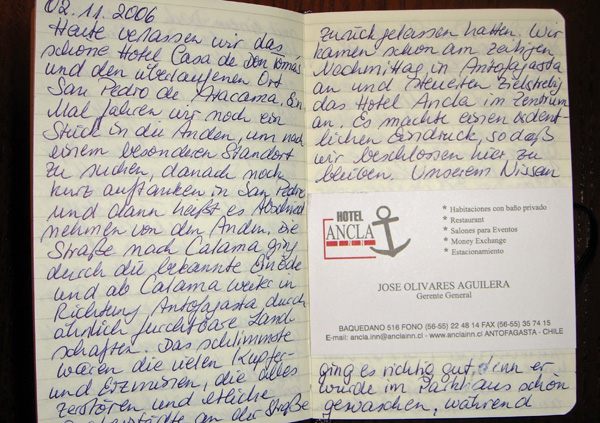 02.11.2006
Heute verlassen wir das
schöne Hotel Casa de Don Tomás
und den überlaufenen Ort
San Pedro de Atacama. Ein
Mal fahren wir noch ein
Stück in die Anden, um nach
einem besonderen Standort
zu suchen, danach noch
kurz auftanken in San Pedro
und dann heißt es Abschied
nehmen von den Anden. Die
Straße nach Calama ging
durch die bekannte Einöde
und ab Calama weiter in
Richtung Antofagasta durch
ähnlich furchtbare Land-
schaften. Das schlimmste
waren die vielen Kupfer-
und Erzminen, die alles
zerstören und etliche
an der Straße
zurückgelassen hatten. Wir
kamen schon am zeitigen
Nachmittag in Antofagasta
an und steuerten zielstrebig
das Hotel Ancla im Zentrum
an. Es machte einen ordent-
lichen Eindruck, so daß
wir beschlossen hier zu
bleiben. Unserem Nissan
HOTEL
ANCLA
INN
* Habitaciones con baño privado
* Restaurant
* Salones para Eventos
* Money Exchange
* Estacionamiento
JOSE OLIVARES AGUILERA
Gerente General
BAQUEDANO 516 FONO (56-55) 22 48 14 FAX (56-55) 35 74 15
E-mail: ancla.inn@anclainn.cl - www.anclainn.cl ANTOFAGASTA - CHILE
ging es richtig gut, denn er
wurde im Parkhaus schön
gewaschen, während